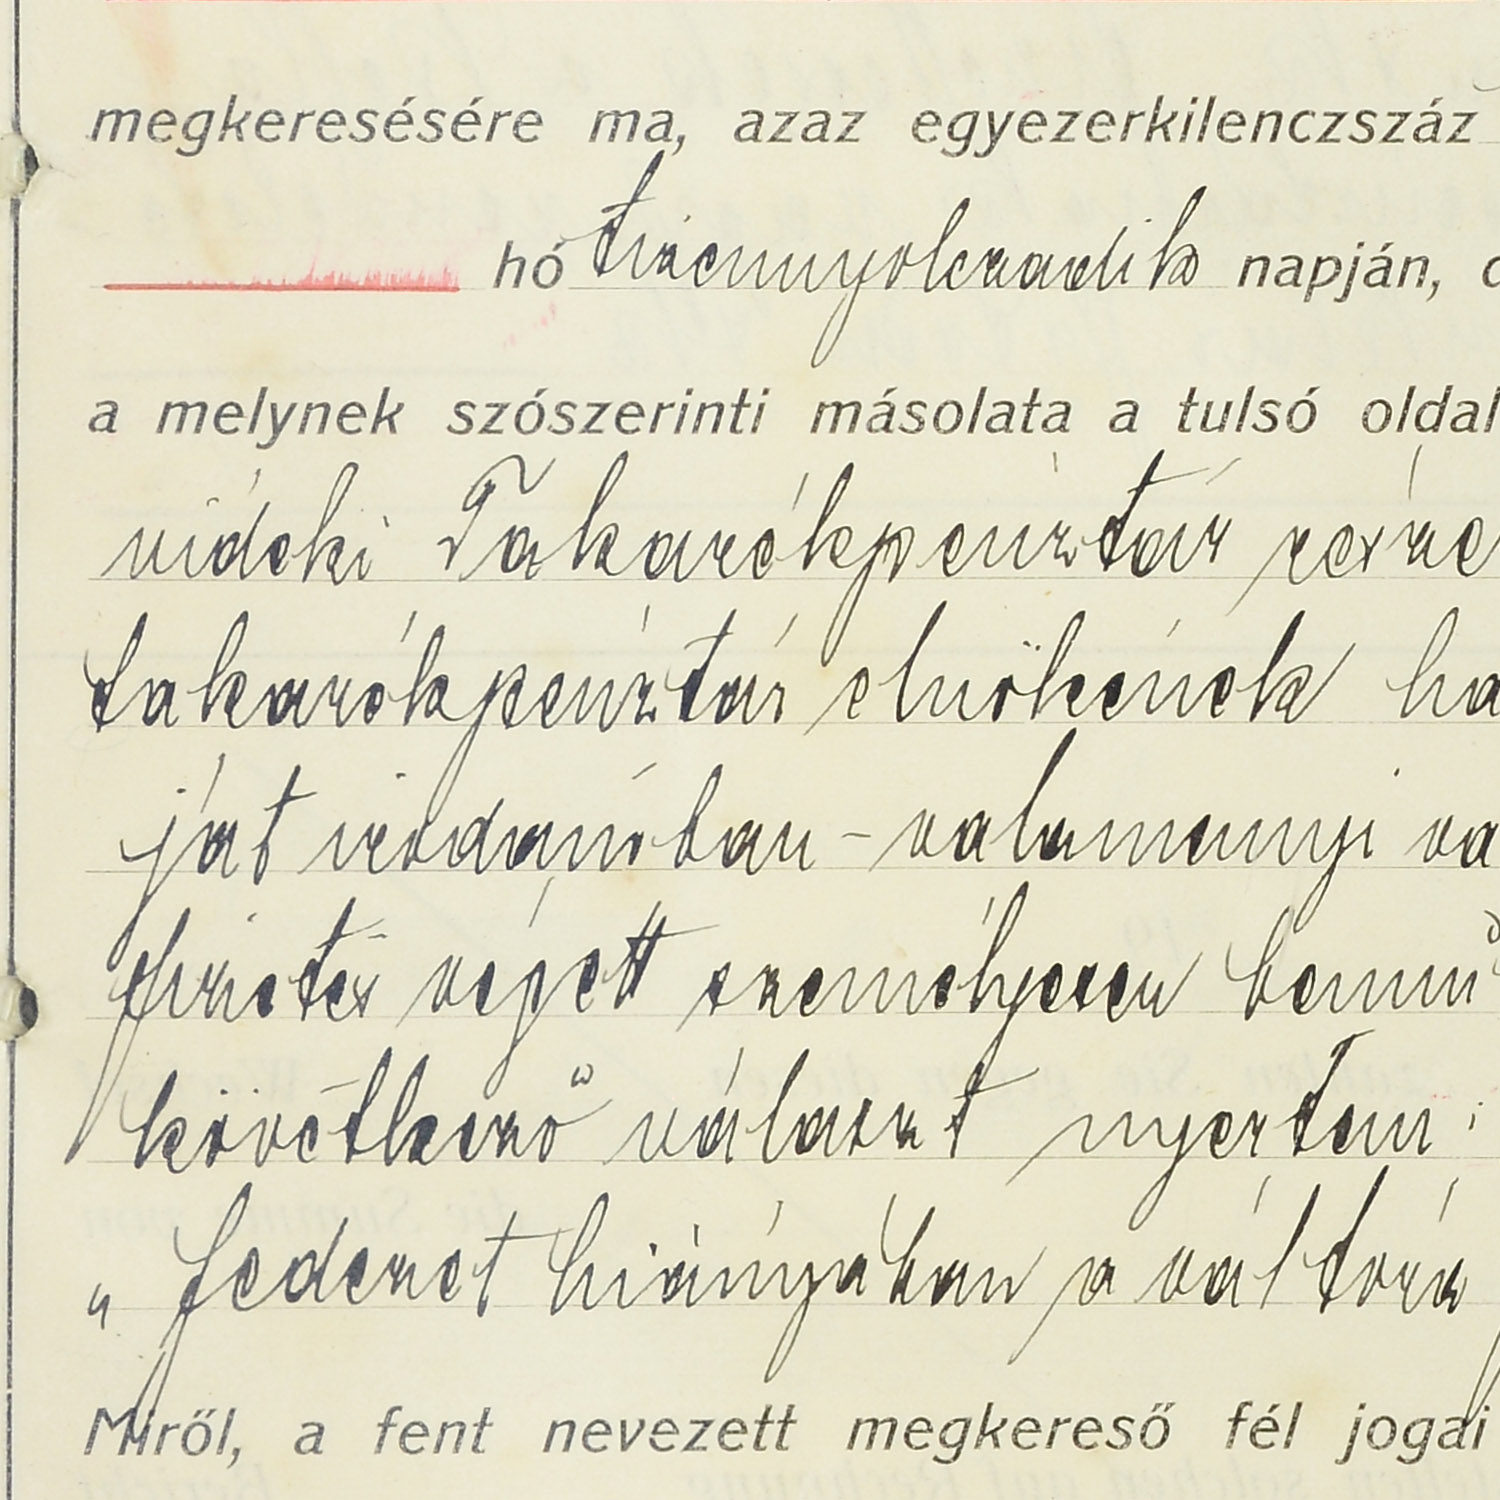 megkeresésére ma, azaz egyezerkilenczszáz
hó tizennyolczadik napján,
a melynek szószerinti másolata a tulsó oldal
vidéki Takarékpénztár részé
takarékpénztár elnökének ha
ját irodámban - valamennyi va
fizetés végett személyesen bemu
következő választ nyertem:
„fedezet hiányában a váltóra
Miről, a fent nevezett megkereső fél jogai